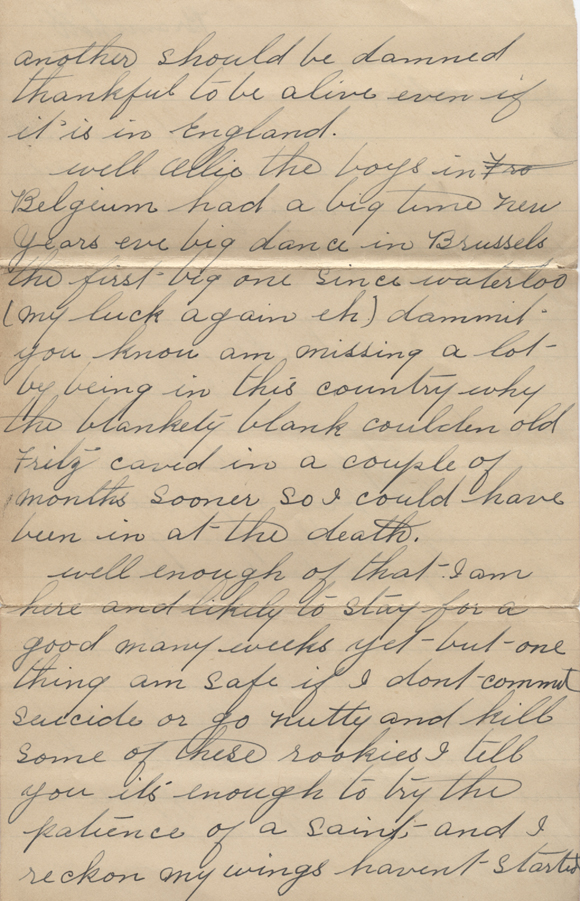 another should be damned
thankful to be alive even if
it is in England.
well Ollie the boys in Fro
Belgium had a big time new
years eve big dance in Brussels
the first big one since waterloo
(my luck again eh) dammit
you know am missing a lot
by being in this country why
the blankety blank coulden old
Fritz caved in a couple of
months sooner so I could have
been in at the death.
well enough of that I am
here and likely to stay for a
good many weeks yet but one
thing am safe if I dont commit
suicide or go nutty and kill
some of these rookies I tell
you its enough to try the
patience of a saint and I
reckon my wings havent started